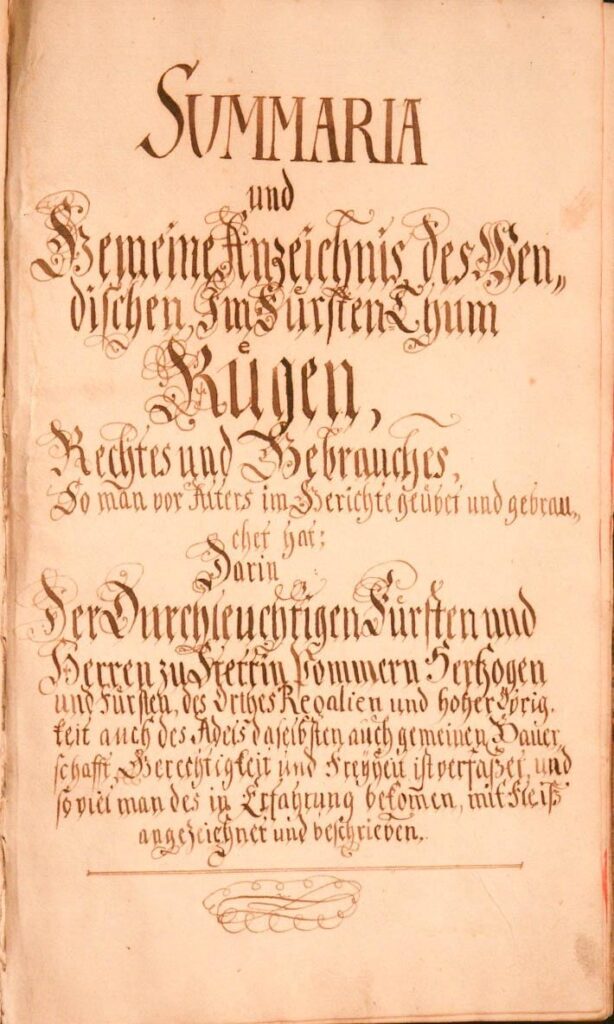 SUMMARIA
und
Gemeine Anzeichnis des Wen„
dischen, Im Fürsten Thum
Rügen,
Rechtes und Gebrauches,
So man vor Alters im Gerichte geübet und gebrau„
chet hat;
Darin
Der Durchleuchtigen Fürsten und
Herren zu Stettin Pommern Hertzogen
und Fürsten, des Orthes Regalien und hoher Obrig,
keit auch des Adels daselbsten auch gemeinen Bauer„
schafft, Gerechtigkeit und Freyheit ist verfaßet, und
so viel man des in Erfahrung bekom̅en, mit Fleiß
angezeichnet und beschrieben.